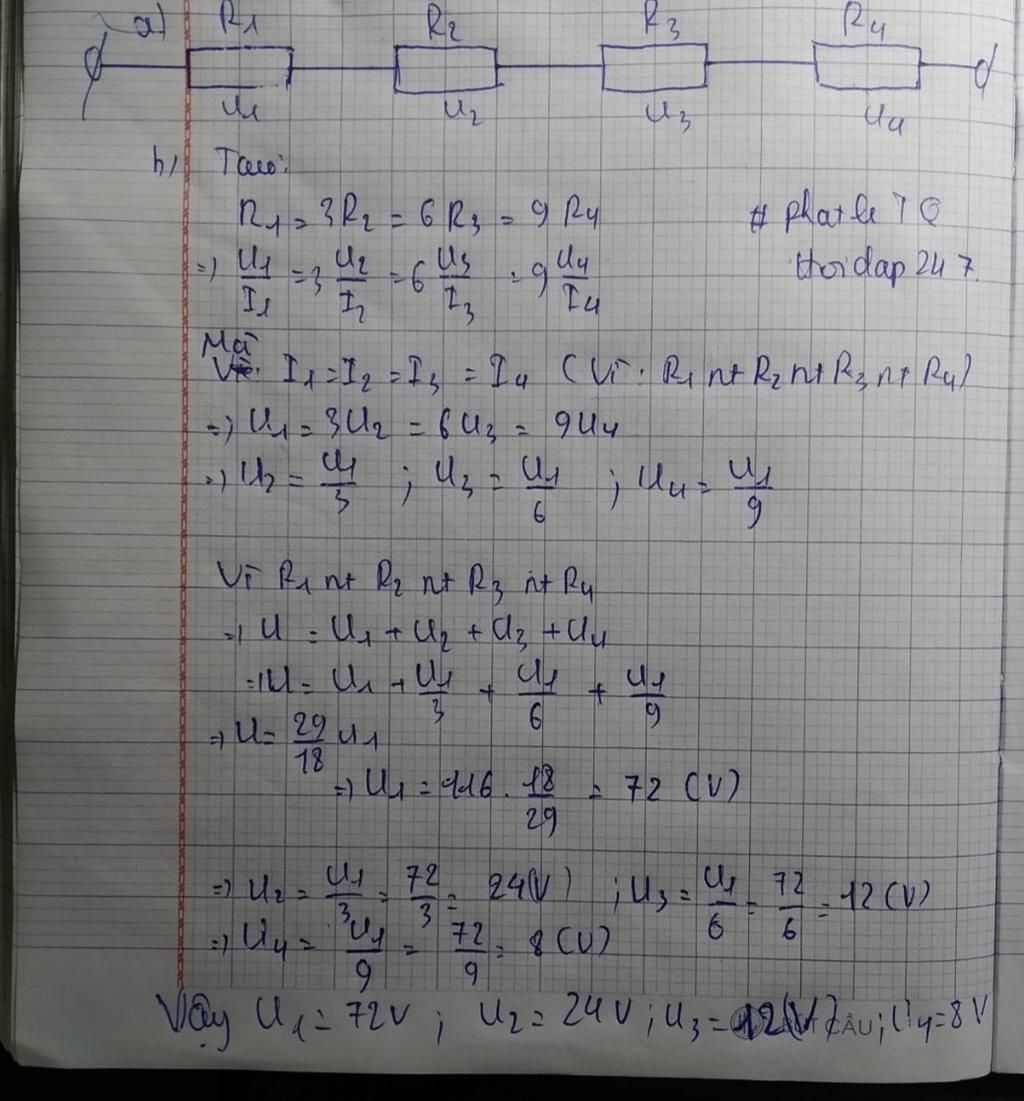 a) R1 R2 R3 R4
U1 U2 U3 U4
b) Ta có:
R1 = 3R2 = 6R3 = 9R4
# phatle TQ
=) U1/I1 = 3 U2/I2 = 6 U3/I3 = 9 U4/I4
Hoidap247.
Mà
I1 = I2 = I3 = I4 (Vì: R1 nt R2 nt R3 nt R4)
=) U1 = 3U2 = 6U3 = 9U4
=) U2 = U1/3 ; U3 = U1/6 ; U4 = U1/9
Vì R1 nt R2 nt R3 nt R4
=) U = U1 + U2 + U3 + U4
=) U = U1 + U1/3 + U1/6 + U1/9
=) U = 29/18 U1
=) U1 = 116 . 18/29 = 72 (V)
=) U2 = U1/3 = 72/3 = 24(V) ; U3 = U1/6 = 72/6 = 12 (V)
=) U4 = U1/9 = 72/9 = 8 (V)
Vậy U1 = 72V ; U2 = 24V ; U3 = 12(V) ; U4 = 8V